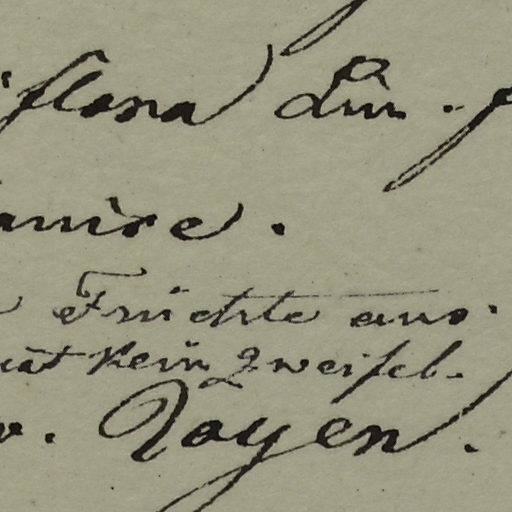 iflora Lin. f
anire.
Früchte aus.
hat kein Zweifel.
v. Royen.